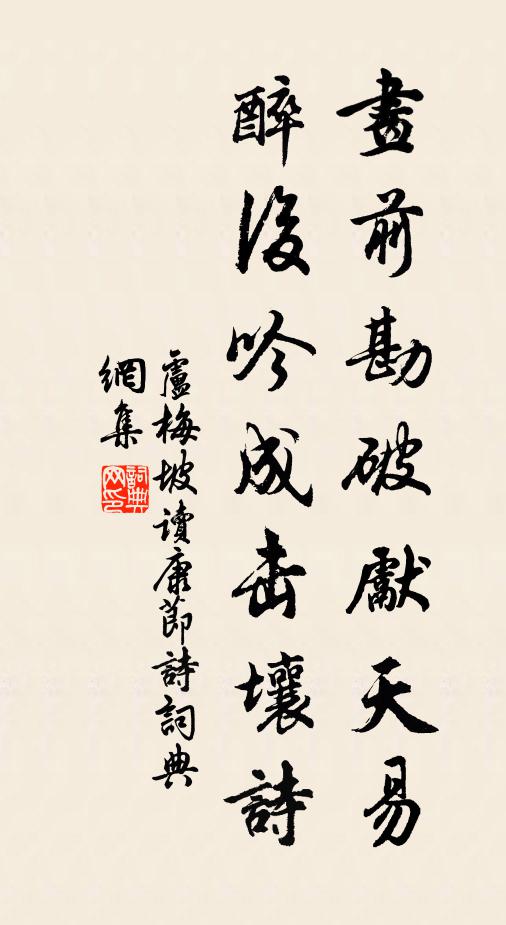 畫前勘破獻天易
醉後吟成击壤詩
盧梅坡读康節詩詞典
網集
詞典
网印